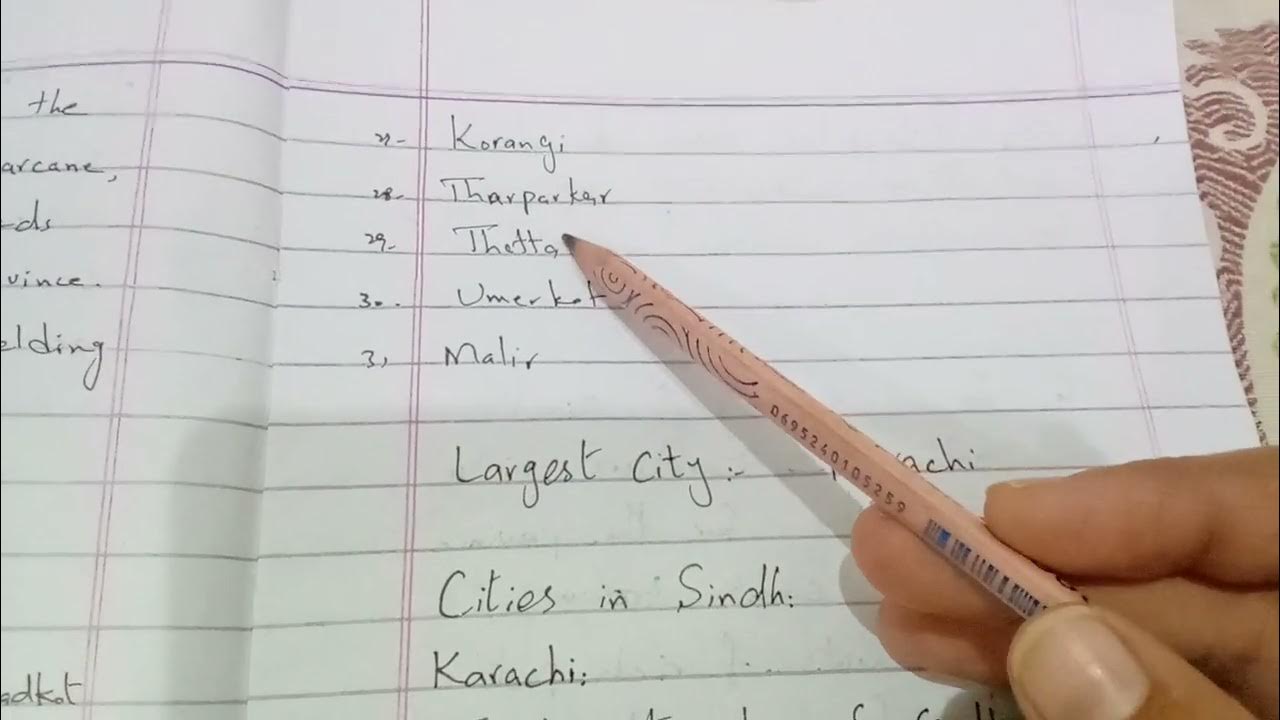 the
arcane,
ds
vince.
elding
adkot
27- Korangi
28- Tharparkar
29- Thatta
30- Umerkot
31 Malir
Largest City:- achi
Cities in Sindh:
Karachi:
D695240105259